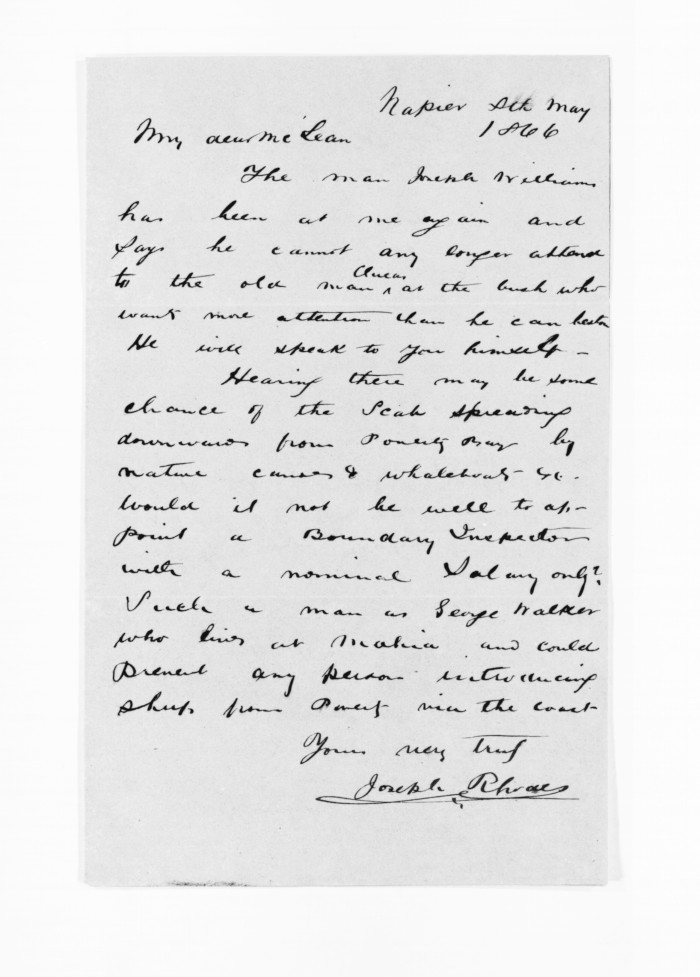 Napier 8th May
1866
My dear McLean
The man Joseph Williams
has been at me again and
Says he cannot any longer attend
to the old man at the bush who
wants more attention than he can bestow
He will speak to you himself -
Hearing there may be some
chance of the Scab spreading
downwards from Poverty Bay by
native canoes & whaleboats &c.
Would it not be well to ap-
point a Boundary Inspector
with a nominal Salary only?
Such a man as George Walker
who lives at Mahia and could
prevent any person introducing
sheep from Poverty via the coast
Yours very truly
Joseph Rhodes